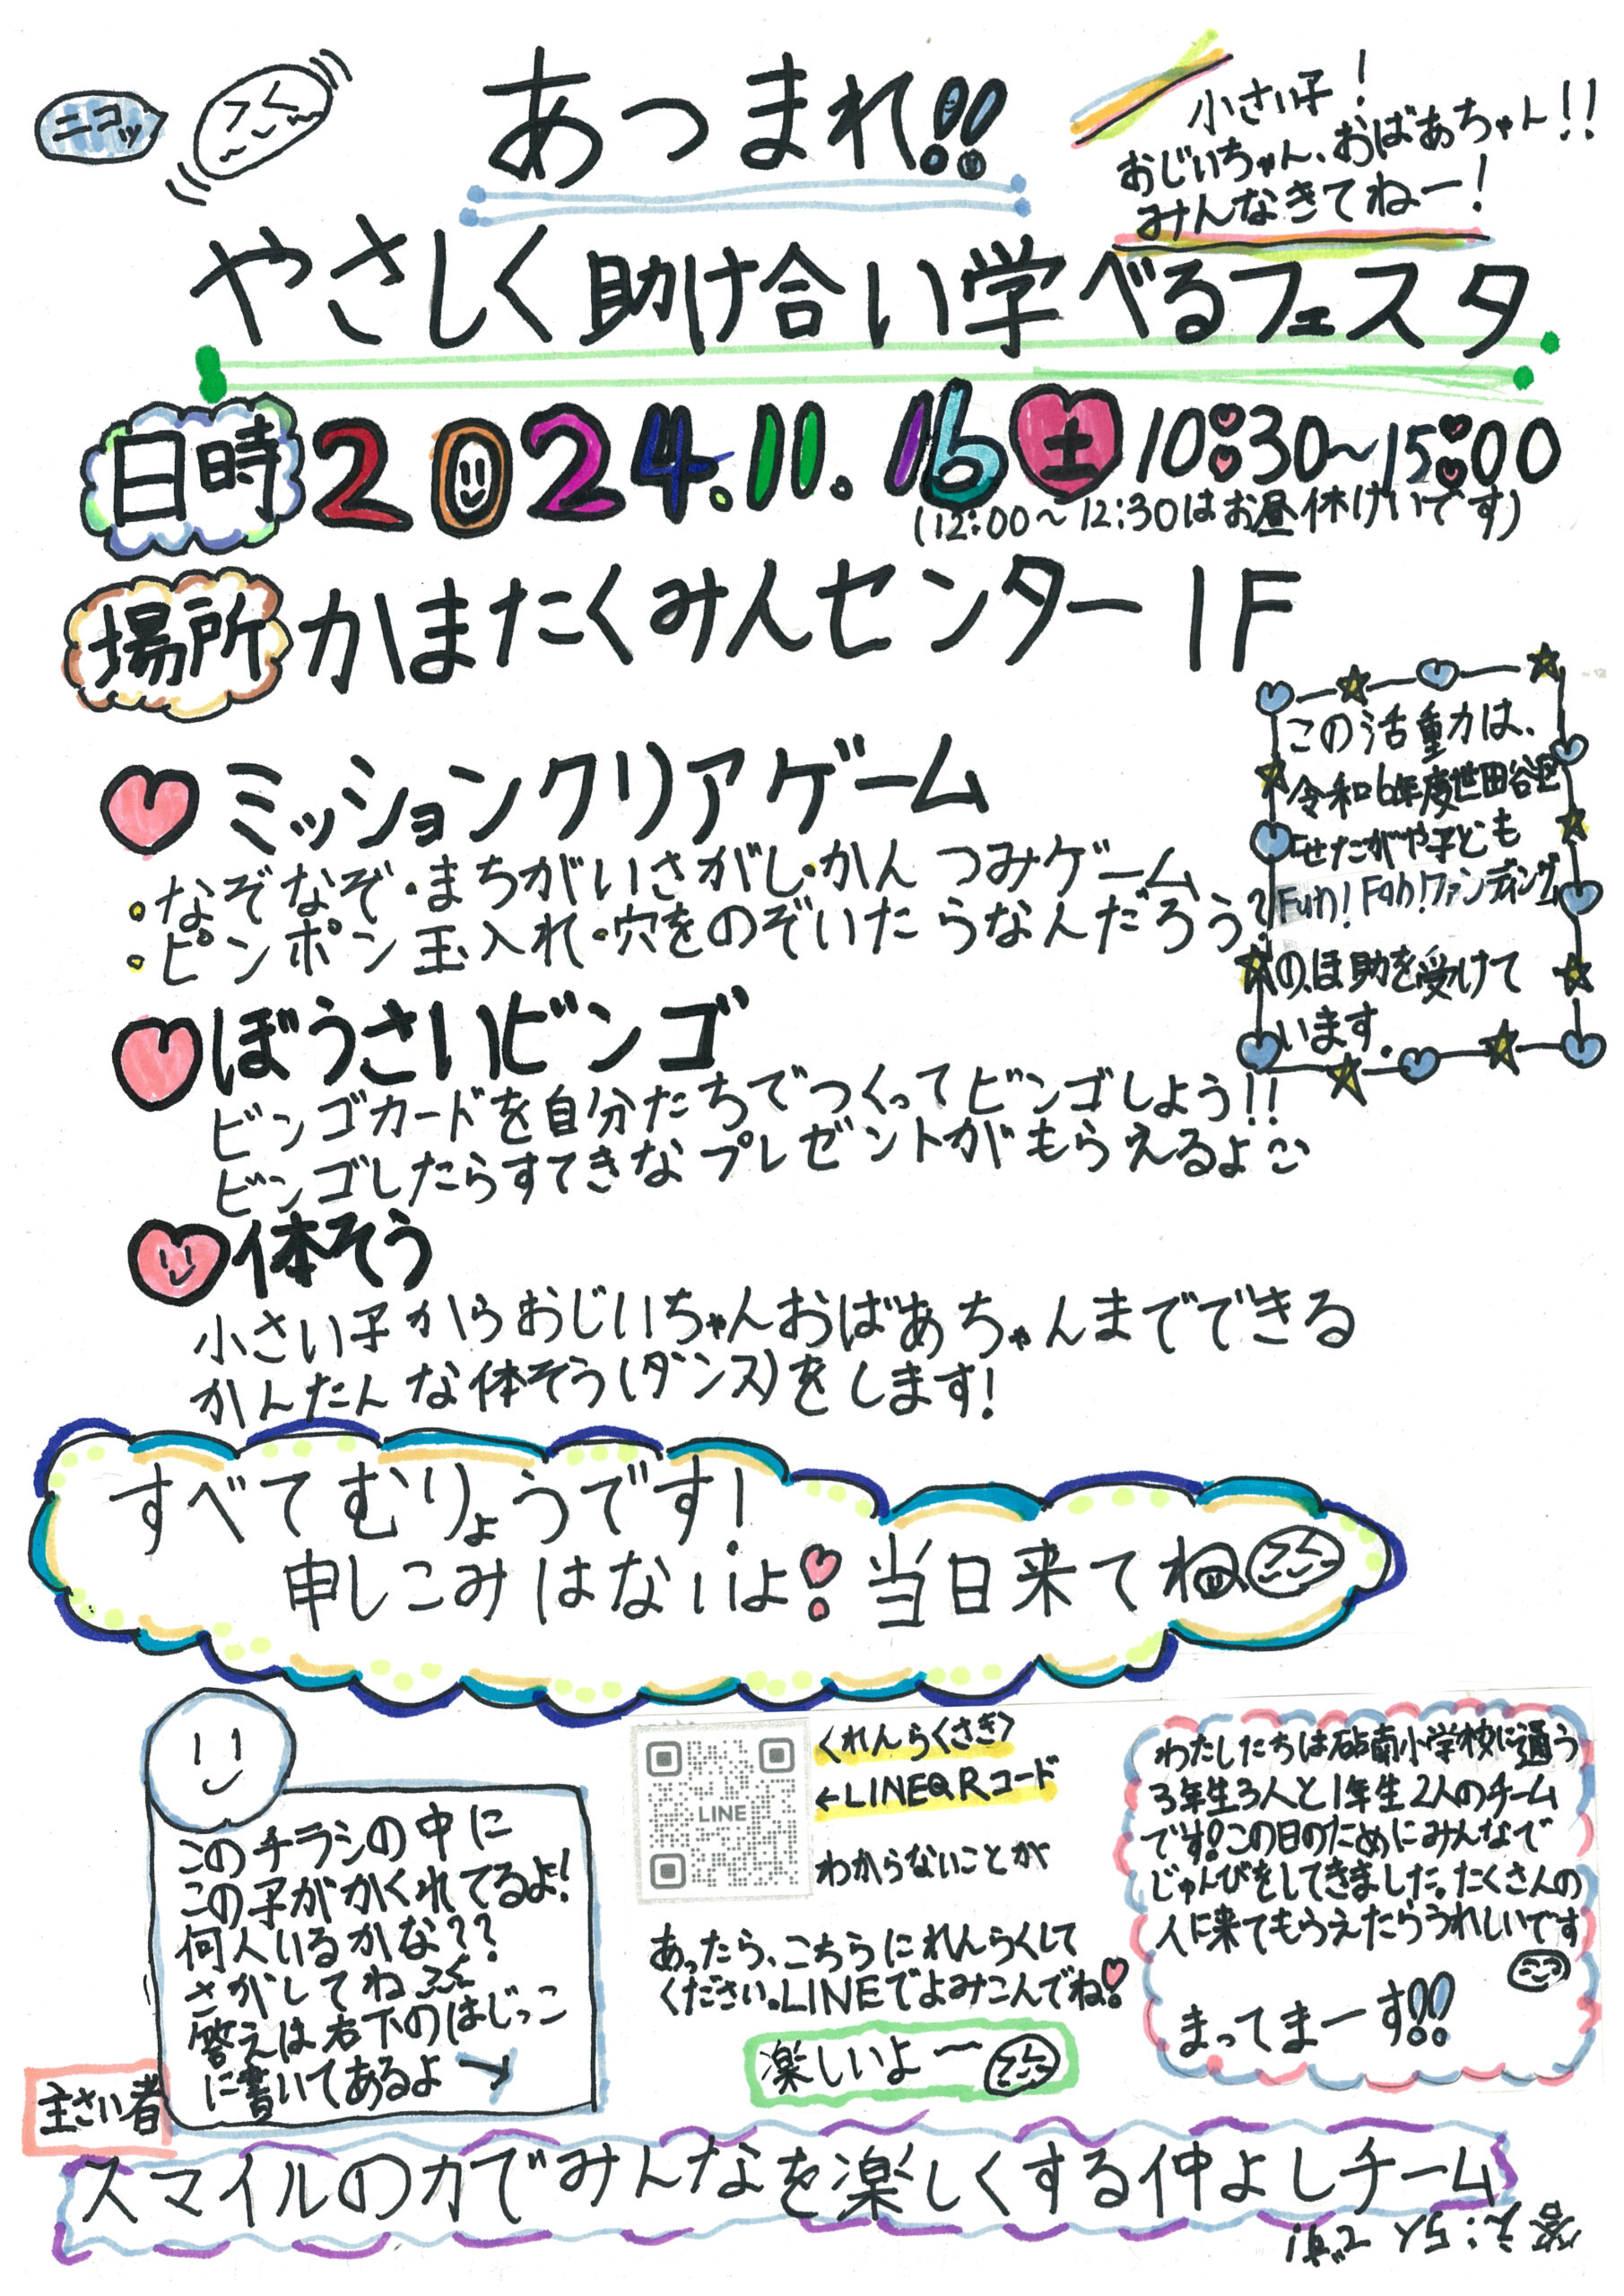 ニコッ
あつまれ!!
小さい子!
おじいちゃん、おばあちゃん!!
みんなきてねー!
やさしく助け合い学べるフェスタ
日時 2024.11.16 土 10:30~15:00
(12:00~12:30はお昼休けいです)
場所 かまたくみんセンター1F
この活動は、
令和6年度世田谷区
「せたがや子ども
Fun! Fan!ファンディング」
のほ助を受けて
います.
ミッションクリアゲーム
・なぞなぞ・まちがいさがし・かんつみゲーム
・ピンポン玉入れ・穴をのぞいたらなんだろう?
ぼうさいビンゴ
ビンゴカードを自分たちでつくってビンゴしよう!!
ビンゴしたらすてきなプレゼントがもらえるよ
体そう
小さい子からおじいちゃんおばあちゃんまでできる
かんたんな体そう(ダンス)をします!
すべてむりょうです!
申しこみはないよ!当日来てね
このチラシの中に
この子がかくれてるよ!
何人いるかな??
さがしてね
答えは右下のはじっこ
に書いてあるよ→
LINE
<れんらくさき>
←LINEQRコード
わからないことが
あったら、こちらにれんらくして
ください。LINEでよみこんでね!
楽しいよー
わたしたちは砧南小学校に通う
3年生3人と1年生2人のチーム
です!この日のためにみんなで
じゅんびをしてきました。たくさんの
人に来てもらえたらうれしいです
まってまーす!!
主さい者
スマイルの力でみんなを楽しくする仲よしチーム